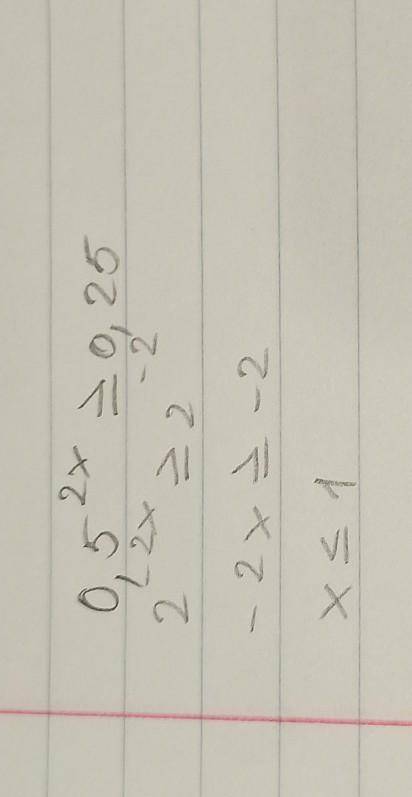 0,5^2x ≥ 0,25
2^-2x ≥ 2^-2
-2x ≥ -2
x ≤ 1